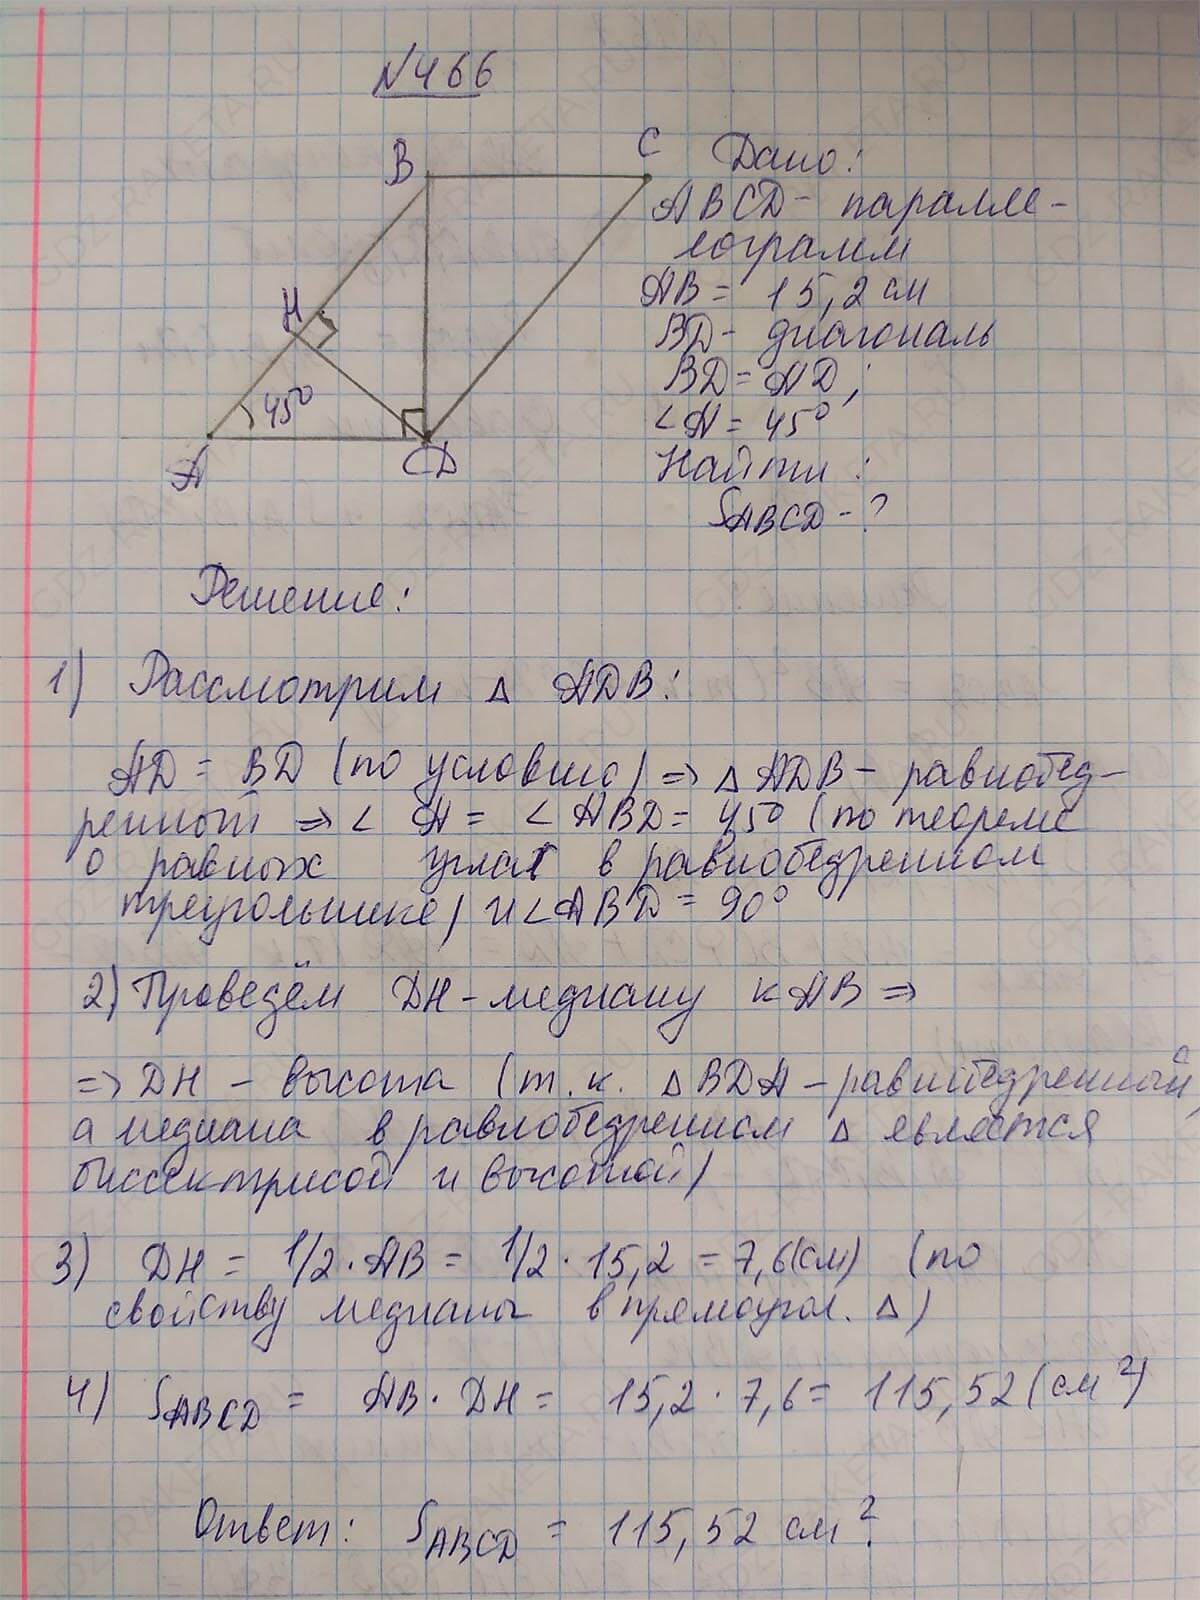 №466
B
C
Дано:
ABCD - паралле-
лограмм
AB = 15,2 см
BD - диагональ
BD = AD;
∠A = 45°
Найти:
SABCD - ?
H
45°
A
D
Решение:
1) Рассмотрим △ ADB:
AD = BD (по условию) => △ ADB - равнобед-
ренный => ∠ A = ∠ ABD = 45° (по теореме
о равных углах в равнобедренном
треугольнике) и ∠ABD = 90°
2) Проведём DH - медиану к AB =>
=> DH - высота (т.к. △ BDA - равнобедренный,
а медиана в равнобедренном △ является
биссектрисой и высотой)
3) DH = 1/2 · AB = 1/2 · 15,2 = 7,6 (см) (по
свойству медианы в прямоугол. △)
4) SABCD = AB · DH = 15,2 · 7,6 = 115,52 (см²)
Ответ: SABCD = 115,52 см².